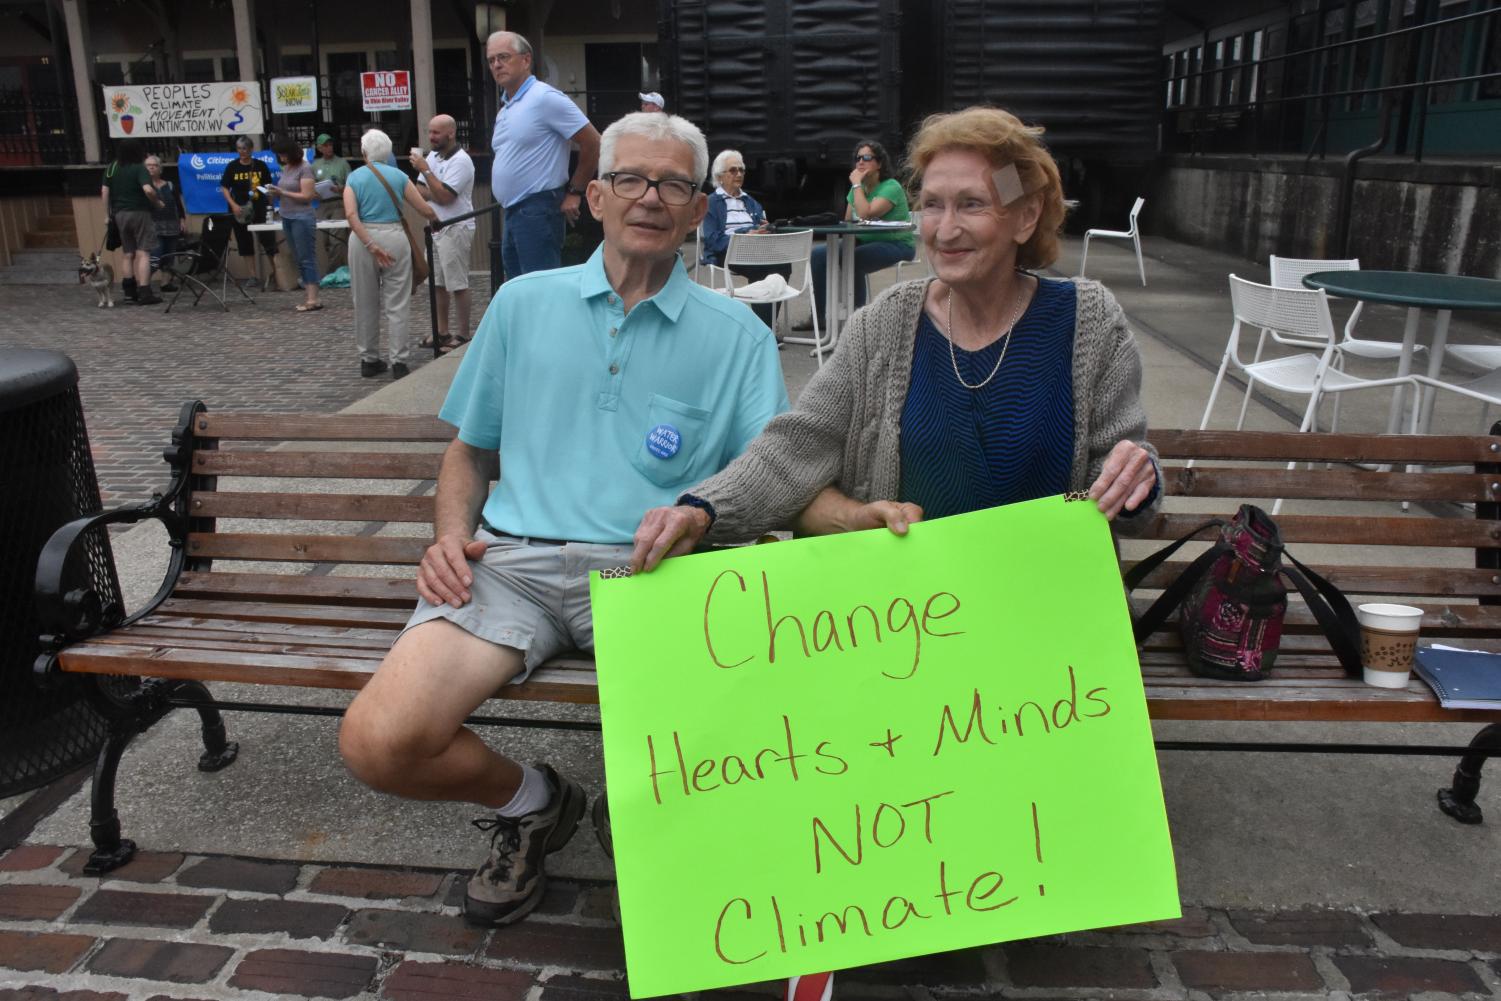 PEOPLES
CLIMATE
MOVEMENT
HUNTINGTON.WV
NOW
NO
CANCER ALLEY
in Ohio River Valley
Citizen
Political
RESIST
WATER
WARRIOR
Change
Hearts + Minds
NOT
Climate!